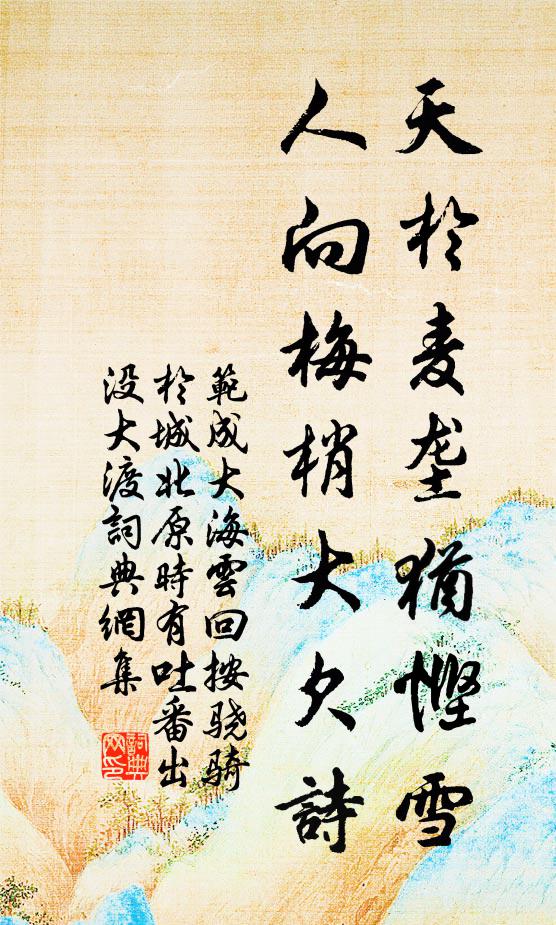 天於麦垄犹慳雪
人向梅梢大欠詩
範成大海雲回按骁骑
於城北原時有吐番出
没大渡詞典網集
詞典網印